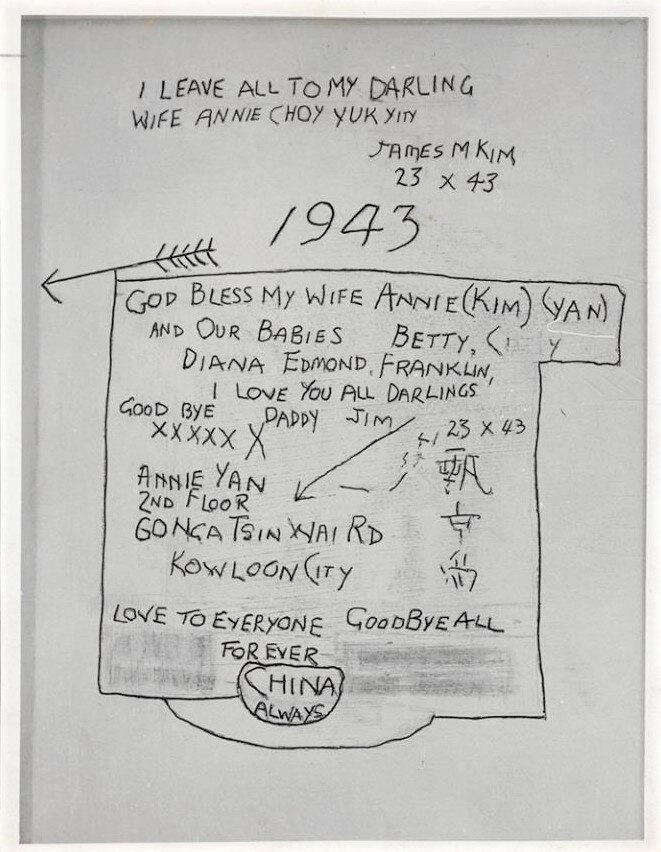 I LEAVE ALL TO MY DARLING
WIFE ANNIE CHOY YUK YIN
JAMES M KIM
23 X 43
1943
GOD BLESS MY WIFE ANNIE (KIM) (YAN)
AND OUR BABIES BETTY,
DIANA EDMOND, FRANKLIN,
I LOVE YOU ALL DARLINGS
GOOD BYE DADDY JIM
XXXXX X
23 X 43
ANNIE YAN
2ND FLOOR
GONGA TSIN WAI RD
KOWLOON CITY
LOVE TO EVERYONE GOODBYE ALL
FOREVER
CHINA
ALWAYS